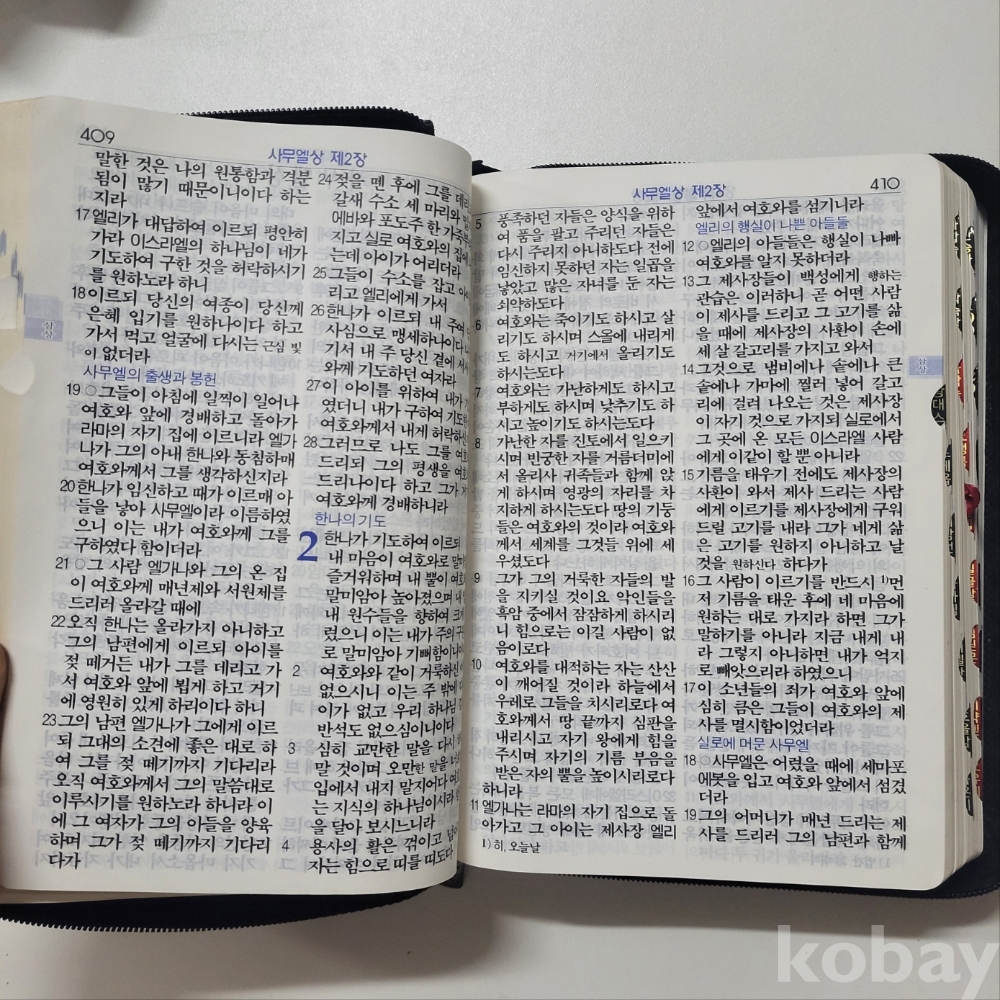 409
사무엘상 제2장
말한 것은 나의 원통함과 격분
됨이 많기 때문이니이다 하는
지라
17 엘리가 대답하여 이르되 평안히
가라 이스라엘의 하나님이 네가
기도하여 구한 것을 허락하시기
를 원하노라 하니
18 이르되 당신의 여종이 당신께
은혜 입기를 원하나이다 하고
가서 먹고 얼굴에 다시는 근심 빛
이 없더라
사무엘의 출생과 봉헌
19 ○그들이 아침에 일찍이 일어나
여호와 앞에 경배하고 돌아가
라마의 자기 집에 이르니라 엘가
나가 그의 아내 한나와 동침하매
여호와께서 그를 생각하신지라
20 한나가 임신하고 때가 이르매 아
들을 낳아 사무엘이라 이름하였
으니 이는 내가 여호와께 그를
구하였다 함이더라
21 ○그 사람 엘가나와 그의 온 집
이 여호와께 매년제와 서원제를
드리러 올라갈 때에
22 오직 한나는 올라가지 아니하고
그의 남편에게 이르되 아이를
젖 떼거든 내가 그를 데리고 가
서 여호와 앞에 뵙게 하고 거기
에 영원히 있게 하리이다 하니
23 그의 남편 엘가나가 그에게 이르
되 그대의 소견에 좋은 대로 하
여 그를 젖 떼기까지 기다리라
오직 여호와께서 그의 말씀대로
이루시기를 원하노라 하니라 이
에 그 여자가 그의 아들을 양육
하며 그가 젖 떼기까지 기다리
다가
24 젖을 뗀 후에 그를 데리
갈새 수소 세 마리와 밀
에바와 포도주 한 가죽부
지고 실로 여호와의 집에
는데 아이가 어리더라
25 그들이 수소를 잡고 아
리고 엘리에게 가서
26 한나가 이르되 내 주여
사심으로 맹세하나이다 나
기서 내 주 당신 곁에 서서
와께 기도하던 여자라
27 이 아이를 위하여 내가 기
였더니 내가 구하여 기도한
여호와께서 내게 허락하신
28 그러므로 나도 그를 여호
드리되 그의 평생을 여호
드리나이다 하고 그가 거
여호와께 경배하니라
한나의 기도
2 한나가 기도하여 이르되
내 마음이 여호와로 말미
즐거워하며 내 뿔이 여호
말미암아 높아졌으며 내 입
내 원수들을 향하여 크게
렸으니 이는 내가 주의 구
로 말미암아 기뻐함이니이
2 여호와와 같이 거룩하신 이
없으시니 이는 주 밖에 다
이가 없고 우리 하나님
반석도 없으심이니이다
3 심히 교만한 말을 다시 하
말 것이며 오만한 말을 너희
입에서 내지 말지어다 여호
는 지식의 하나님이시라
을 달아 보시느니라
4 용사의 활은 꺾이고 넘어
자는 힘으로 띠를 띠도다
사무엘상 제2장
410
5 풍족하던 자들은 양식을 위하
여 품을 팔고 주리던 자들은
다시 주리지 아니하도다 전에
임신하지 못하던 자는 일곱을
낳았고 많은 자녀를 둔 자는
쇠약하도다
6 여호와는 죽이기도 하시고 살
리기도 하시며 스올에 내리게
도 하시고 거기에서 올리기도
하시는도다
7 여호와는 가난하게도 하시고
부하게도 하시며 낮추기도 하
시고 높이기도 하시는도다
8 가난한 자를 진토에서 일으키
시며 빈궁한 자를 거름더미에
서 올리사 귀족들과 함께 앉
게 하시며 영광의 자리를 차
지하게 하시는도다 땅의 기둥
들은 여호와의 것이라 여호와
께서 세계를 그것들 위에 세
우셨도다
9 그가 그의 거룩한 자들의 발
을 지키실 것이요 악인들을
흑암 중에서 잠잠하게 하시리
니 힘으로는 이길 사람이 없
음이로다
10 여호와를 대적하는 자는 산산
이 깨어질 것이라 하늘에서
우레로 그들을 치시리로다 여
호와께서 땅 끝까지 심판을
내리시고 자기 왕에게 힘을
주시며 자기의 기름 부음을
받은 자의 뿔을 높이시리로다
하니라
11 엘가나는 라마의 자기 집으로 돌
아가고 그 아이는 제사장 엘리
1) 히, 오늘날
앞에서 여호와를 섬기니라
엘리의 행실이 나쁜 아들들
12 ○엘리의 아들들은 행실이 나빠
여호와를 알지 못하더라
13 그 제사장들이 백성에게 행하는
관습은 이러하니 곧 어떤 사람
이 제사를 드리고 그 고기를 삶
을 때에 제사장의 사환이 손에
세 살 갈고리를 가지고 와서
14 그것으로 냄비에나 솥에나 큰
솥에나 가마에 찔러 넣어 갈고
리에 걸려 나오는 것은 제사장
이 자기 것으로 가지되 실로에서
그 곳에 온 모든 이스라엘 사람
에게 이같이 할 뿐 아니라
15 기름을 태우기 전에도 제사장의
사환이 와서 제사 드리는 사람
에게 이르기를 제사장에게 구워
드릴 고기를 내라 그가 네게 삶
은 고기를 원하지 아니하고 날
것을 원하신다 하다가
16 그 사람이 이르기를 반드시 1)먼
저 기름을 태운 후에 네 마음에
원하는 대로 가지라 하면 그가
말하기를 아니라 지금 내게 내
라 그렇지 아니하면 내가 억지
로 빼앗으리라 하였으니
17 이 소년들의 죄가 여호와 앞에
심히 큼은 그들이 여호와의 제
사를 멸시함이었더라
실로에 머문 사무엘
18 ○사무엘은 어렸을 때에 세마포
에봇을 입고 여호와 앞에서 섬겼
더라
19 그의 어머니가 매년 드리는 제
사를 드리러 그의 남편과 함께
삼상
삼상
kobay